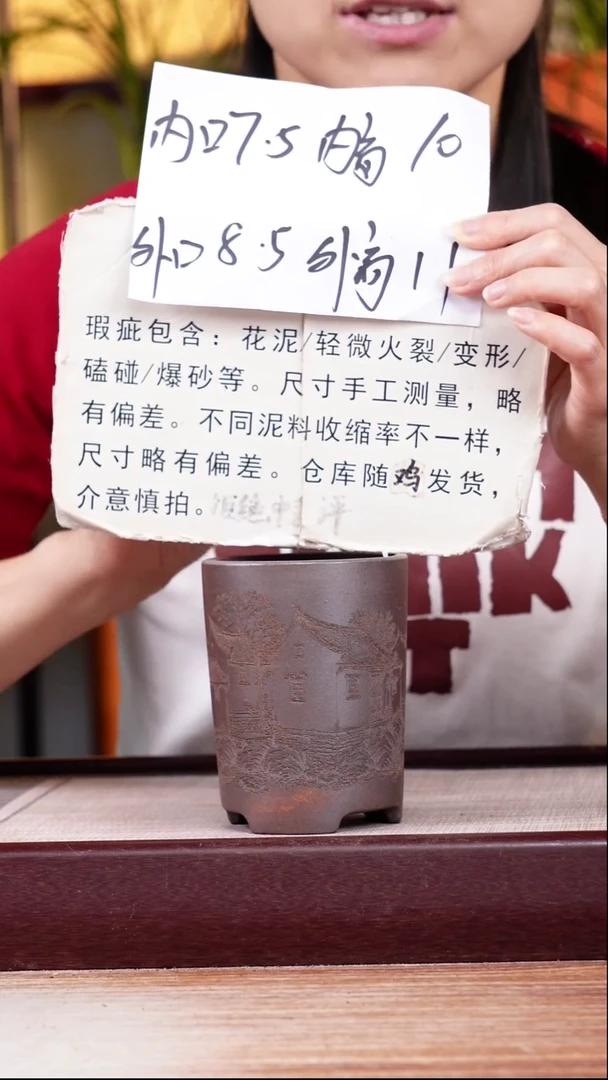 内口7.5 内高 10
外口8.5 外高11
瑕疵包含：花泥/轻微火裂/变形/
磕碰/爆砂等。尺寸手工测量，略
有偏差。不同泥料收缩率不一样，
尺寸略有偏差。仓库随鸡发货，
介意慎拍。